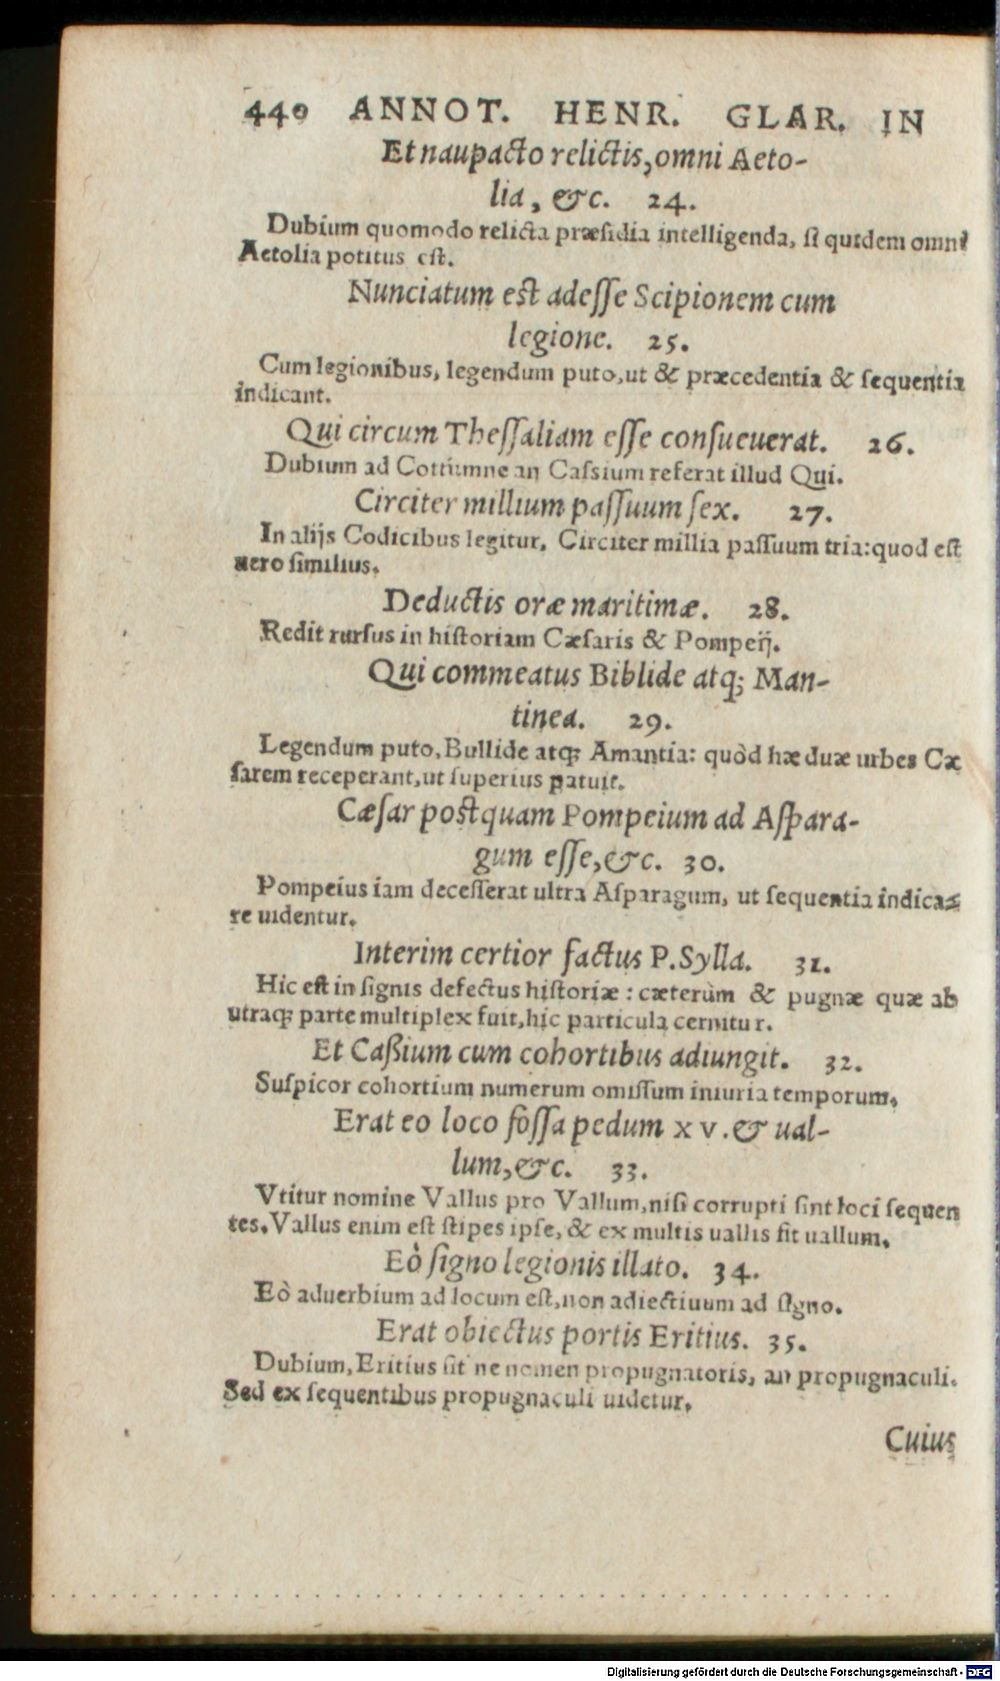 440 ANNOT. HENR. GLAR. IN
Et naupacto relictis, omni Aeto-
lia, &c. 24.
Dubium quomodo relicta præsidia intelligenda, si quidem omni
Aetolia potitus est.
Nunciatum est adesse Scipionem cum
legione. 25.
Cum legionibus, legendum puto, ut & præcedentia & sequentia
indicant.
Qui circum Thessaliam esse consueuerat. 26.
Dubium ad Cottumne an Cassium referat illud Qui.
Circiter millium passuum sex. 27.
In alijs Codicibus legitur, Circiter millia passuum tria: quod est
uero similius.
Deductis oræ maritimæ. 28.
Redit rursus in historiam Cæsaris & Pompeij.
Qui commeatus Biblide atq; Man-
tinea. 29.
Legendum puto, Bullide atq; Amantia: quòd hæ duæ urbes Cæ
sarem receperant, ut superius patuit.
Cæsar postquam Pompeium ad Aspara-
gum esse, &c. 30.
Pompeius iam decesserat ultra Asparagum, ut sequentia indica-
re uidentur.
Interim certior factus P. Sylla. 31.
Hic est in signis defectus historiæ: cæterùm & pugnæ quæ ab
utraq; parte multiplex fuit, hic particula cernitur.
Et Caßium cum cohortibus adiungit. 32.
Suspicor cohortium numerum omissum iniuria temporum.
Erat eo loco fossa pedum xv. & ual-
lum, &c. 33.
Vtitur nomine Vallus pro Vallum, nisi corrupti sint loci sequen
tes. Vallus enim est stipes ipse, & ex multis uallis fit uallum.
Eò signo legionis illato. 34.
Eò aduerbium ad locum est, non adiectiuum ad signo.
Erat obiectus portis Eritius. 35.
Dubium, Eritius sit ne nomen propugnatoris, an propugnaculi.
Sed ex sequentibus propugnaculi uidetur.
Cuius
Digitalisierung gefördert durch die Deutsche Forschungsgemeinschaft - DFG